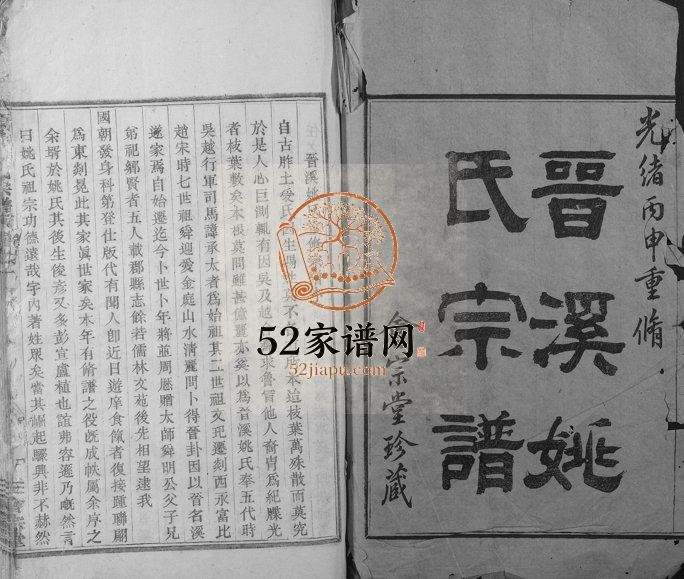 光緒丙申重脩
晉溪姚
氏宗譜
宗堂珍藏
晉溪姚
自古胙土受氏生 不 本這枝葉萬殊散而莫究
於是人心叵測輒有因吳及越 求魯冒他人裔冑爲紀牒光
者枝葉數矣本根莫問雖甚億麗 奚以爲晉溪姚氏奉五代時
吳越行軍司馬諱承太者爲始祖其二世祖文 遷剡西永富比
趙宋時七世祖舜迎愛金庭山水清麗問卜得晉卦因以晉名溪
遂家焉自始遷迄今卜世卜年將並周曆贈太師舜明公父子兄
弟祀鄉賢者五人載郡縣志餘若儒林文苑後先相望逮我
國朝發身科第登仕版代有聞人卽近日遊庠食餼者復接踵聯翩
爲東剡晃此其家眞世家矣本年有脩譜之役旣成帙屬余序之
余壻於姚氏其後生俊彥又多彭宣盧植也誼弗容遜乃嘅然言
曰姚氏祖宗功德遠哉宇內著姓眾矣當其崛起驟興非不赫然
52家谱网
52jiapu.com